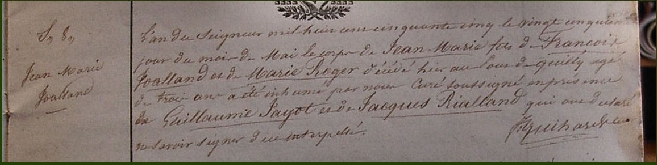 S. 89
Jean Marie
Joalland
L'an du Seigneur mil huit cent cinquante cinq le vingt cinquième
jour du mois de Mai le corps de Jean Marie fils de François
Joalland et de Marie Roger décédé hier au bourg de quilly agé
de trois ans a été inhumé par nous Curé soussigné en présence
de Guillaume Payot et de Jacques Rialland qui ont déclaré
ne savoir signer de ce interpellés.